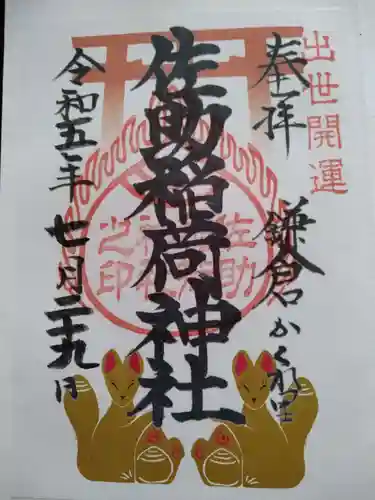 出世開運
奉拝
鎌倉かくれ里
佐助稲荷神社
佐助
之印
令和五年
七月二十九日